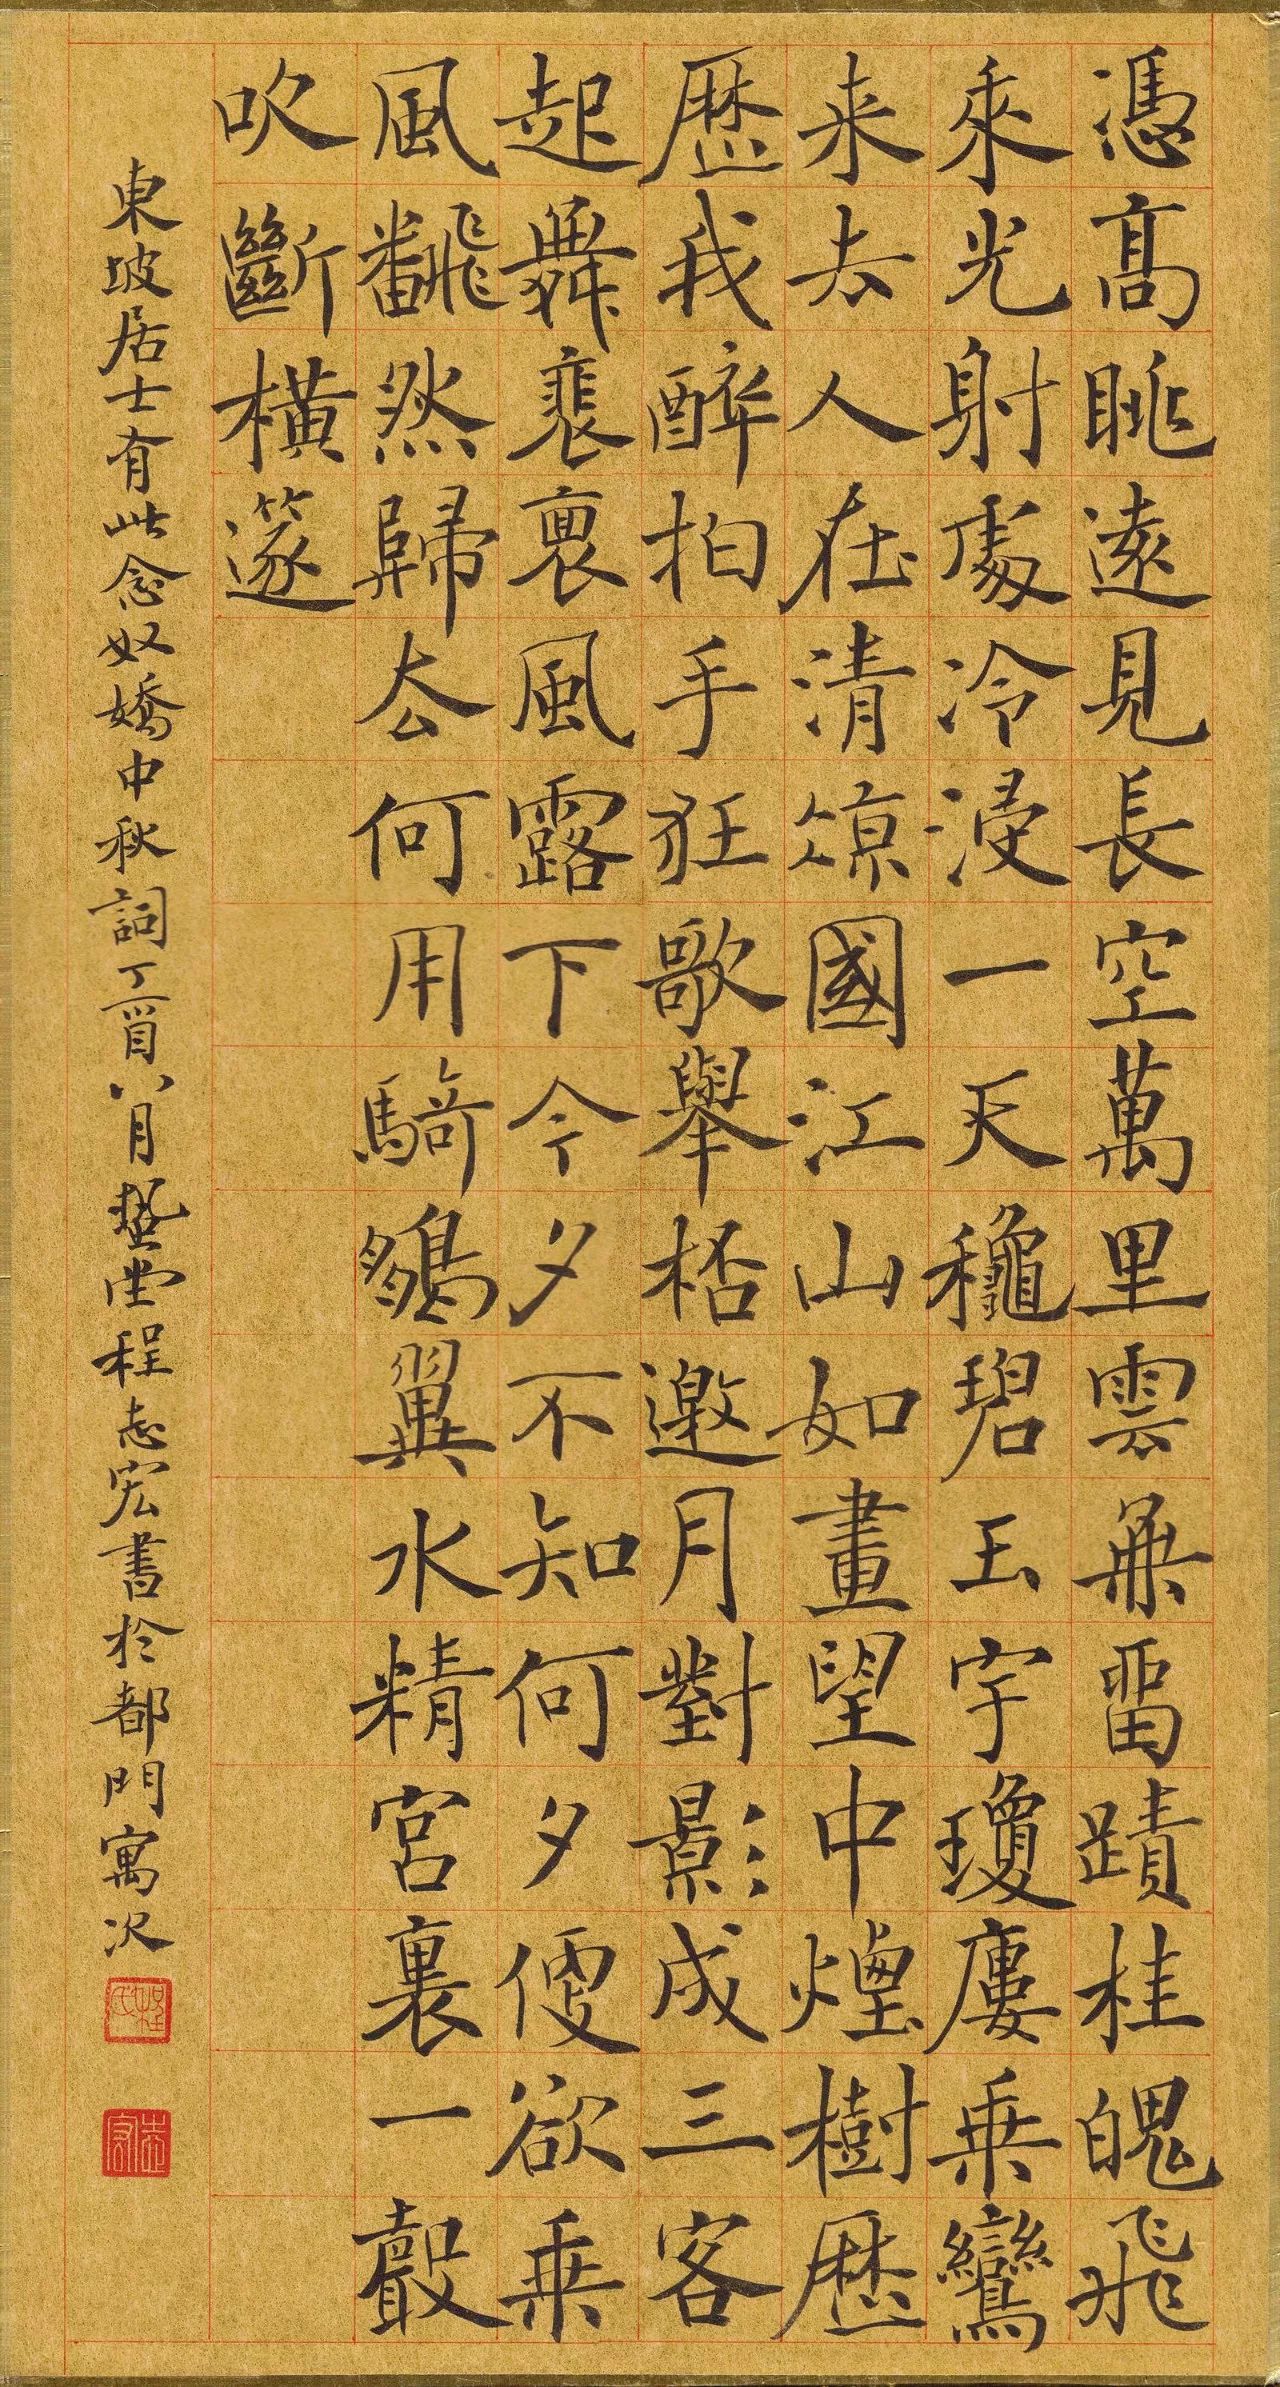 憑高眺遠見長空萬里雲無留蹟桂魄飛
來光射處冷浸一天穐碧玉宇瓊廔乘鸞
来去人在清涼國江山如畫望中煙樹歷
歷我醉拍手狂歌舉桮邀月對影成三客
起舞裵風露下今夕不知何夕便欲乘
風飜然歸去何用騎鵬翼水精宮裏一聲
吹斷橫篴
東坡居士有此念奴嬌中秋詞丁酉八月蟄堂程志宏書於都門寓次
程氏
志宏